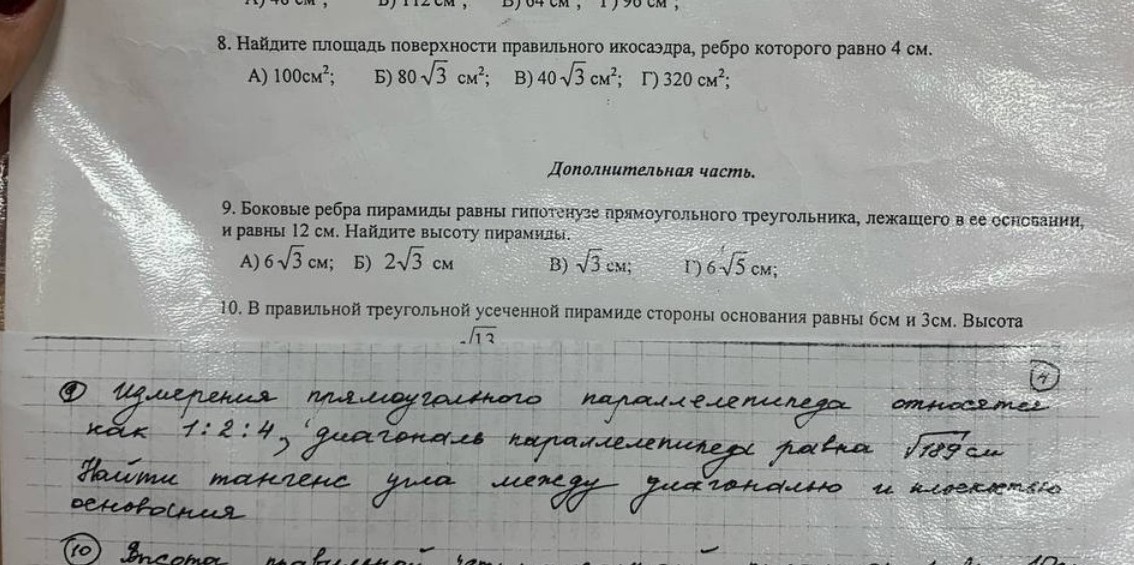 8. Найдите площадь поверхности правильного икосаэдра, ребро которого равно 4 см.
А) 100см²; Б) 80√3 см²; В) 40√3 см²; Г) 320 см²;
Дополнительная часть.
9. Боковые ребра пирамиды равны гипотенузе прямоугольного треугольника, лежащего в ее основании,
и равны 12 см. Найдите высоту пирамиды.
А) 6√3 см; Б) 2√3 см В) √3 см; Г) 6√5 см;
10. В правильной треугольной усеченной пирамиде стороны основания равны 6см и 3см. Высота
√13
4
9 Измерения прямоугольного параллелепипеда относятся
как 1:2:4, диагональ параллелепипеда равна √189 см
Найти тангенс угла между диагональю и плоскостью
основания
10 Высота правильной